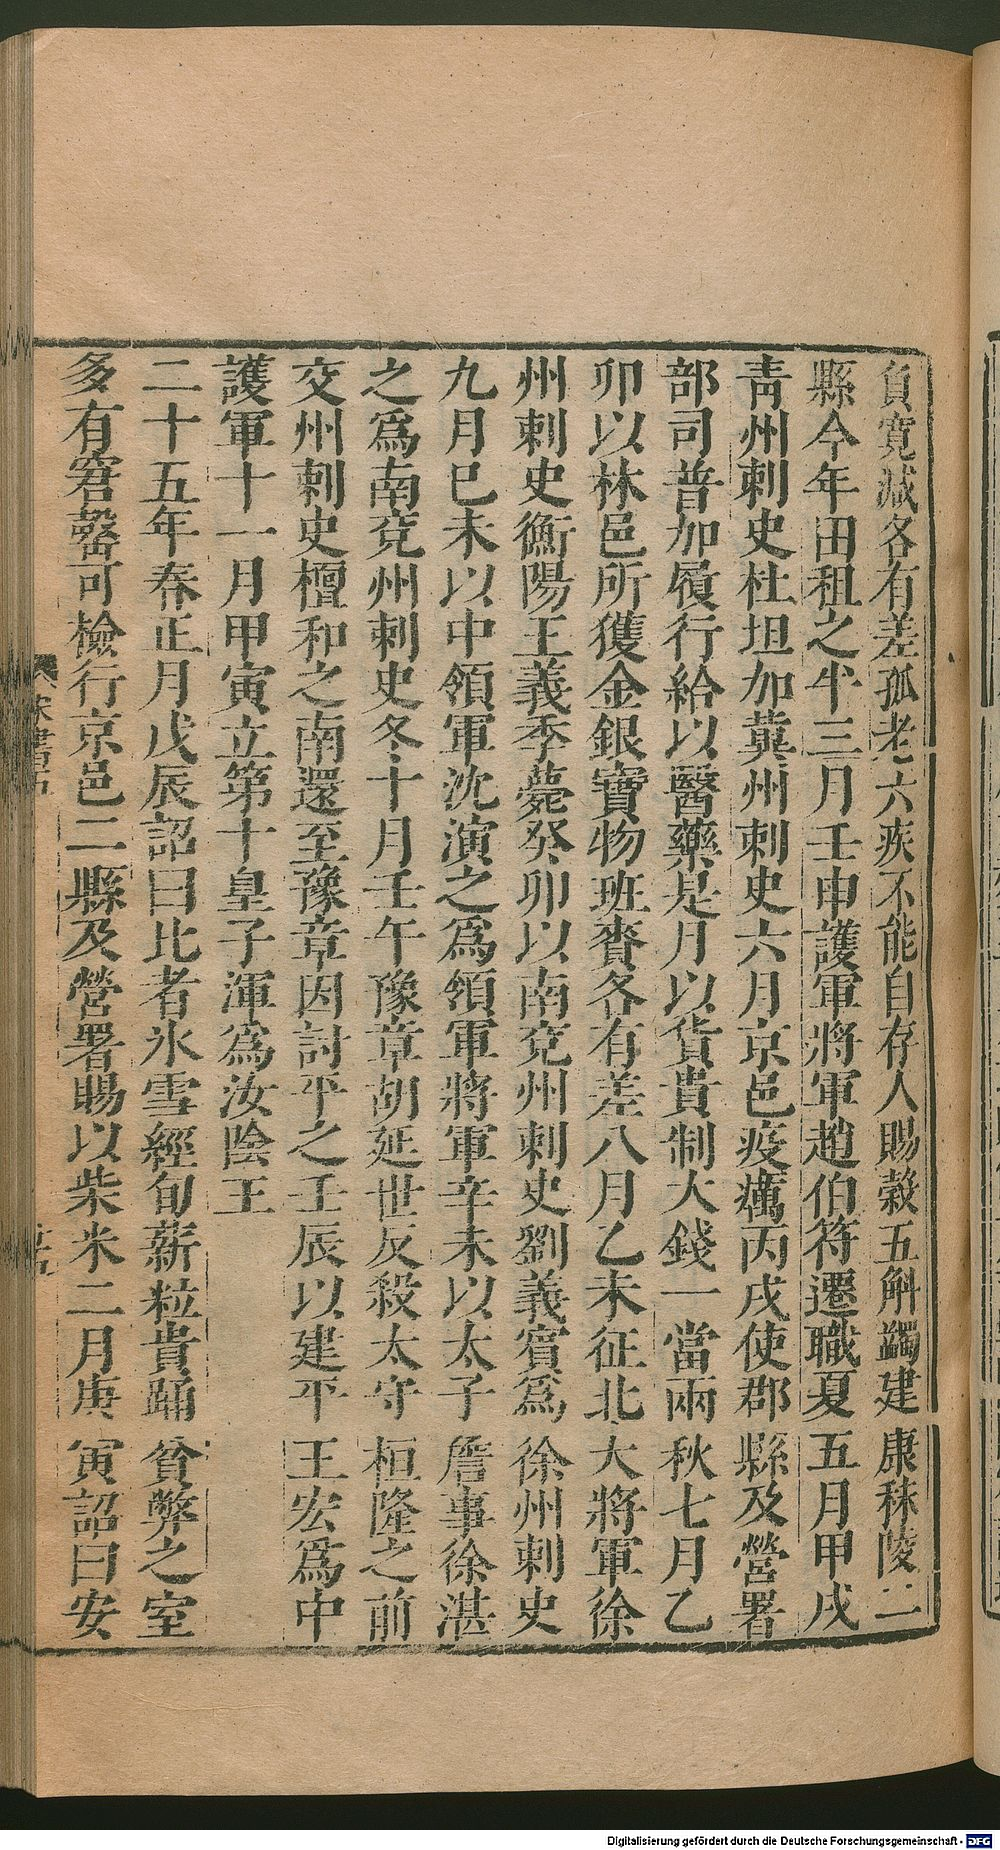 負寬減各有差孤老六疾不能自存人賜穀五斛蠲建康秣陵二
縣今年田租之半三月壬申護軍將軍趙伯符遷職夏五月甲戌
靑州刺史杜坦加冀州刺史六月京邑疫癘丙戌使郡縣及營署
部司普加履行給以醫藥是月以貨貴制大錢一當兩秋七月乙
卯以林邑所獲金銀寶物班賚各有差八月乙未征北大將軍徐
州刺史衡陽王義季薨癸卯以南兗州刺史劉義賓爲徐州刺史
九月巳未以中領軍沈演之爲領軍將軍辛未以太子詹事徐湛
之爲南兗州刺史冬十月壬午豫章胡延世反殺太守桓隆之前
交州刺史檀和之南還至豫章因討平之壬辰以建平王宏爲中
護軍十一月甲寅立第十皇子渾爲汝陰王
二十五年春正月戊辰詔曰比者氷雪經旬薪粒貴踊貧弊之室
多有窘罄可檢行京邑二縣及營署賜以柴米二月庚寅詔曰安
Digitalisierung gefördert durch die Deutsche Forschungsgemeinschaft - DFG